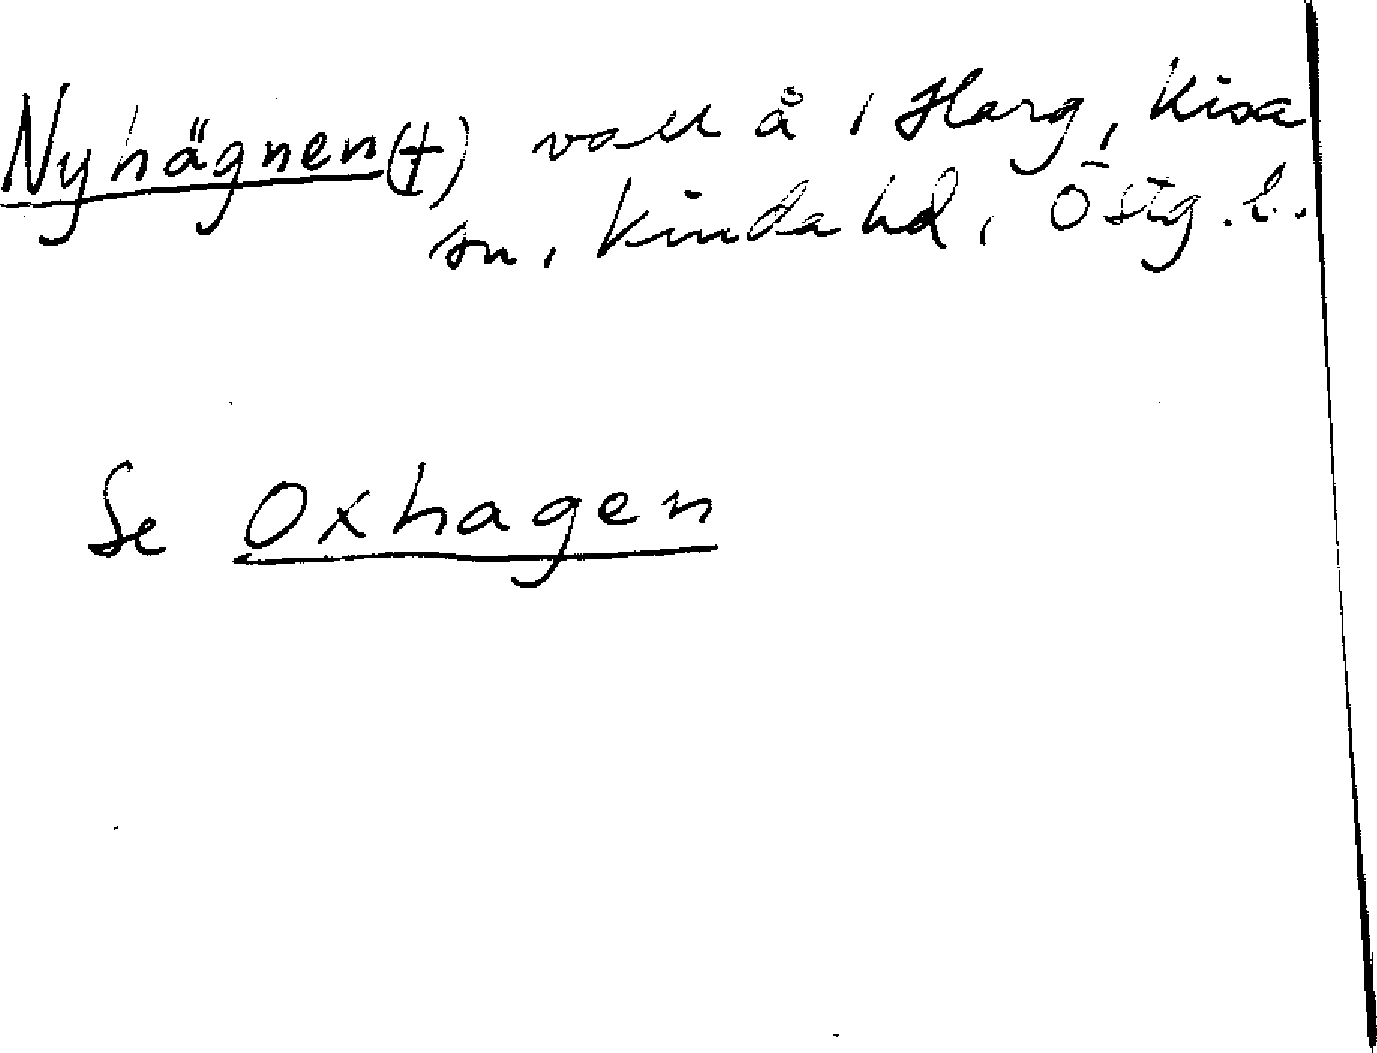 Nyhägnen(†) vall å i Harg, Kisa
sn, Kinda hd, Östg. l.
Se Oxhagen